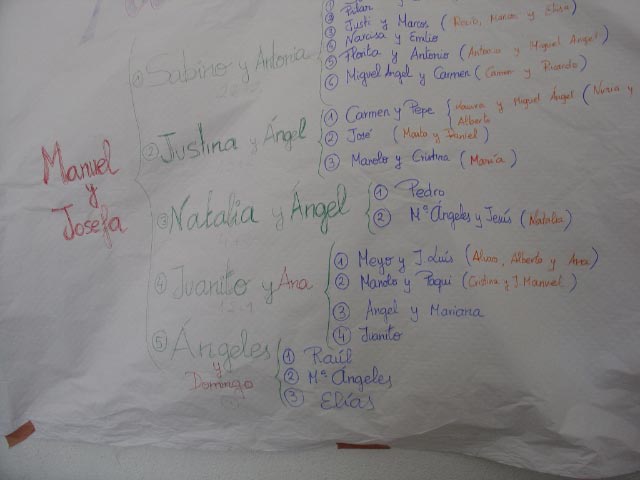 ② Justi y Marcos (Rocío, Marcos y Elisa)
④ Narcisa y Emilio
⑤ Florita y Antonio (Antonio y Miguel Angel)
⑥ Miguel Angel y Carmen (Carmen y Ricardo)
① Sabino y Antonia
① Carmen y Pepe { y Miguel Ángel (Nuria y
Alberto
② Justina y Ángel
② José (Marta y Daniel)
③ Manolo y Cristina (María)
Manuel
y
Josefa
① Pedro
③ Natalia y Ángel
② Mª Ángeles y Jesús (Natalia)
① Meyo y J. Luis (Alvaro, Alberto y Ana)
④ Juanito y Ana
② Manolo y Paqui (Cristina y J. Manuel)
③ Angel y Mariana
④ Juanito
⑤ Ángeles
y
Domingo
① Raúl
② Mª Ángeles
③ Elías